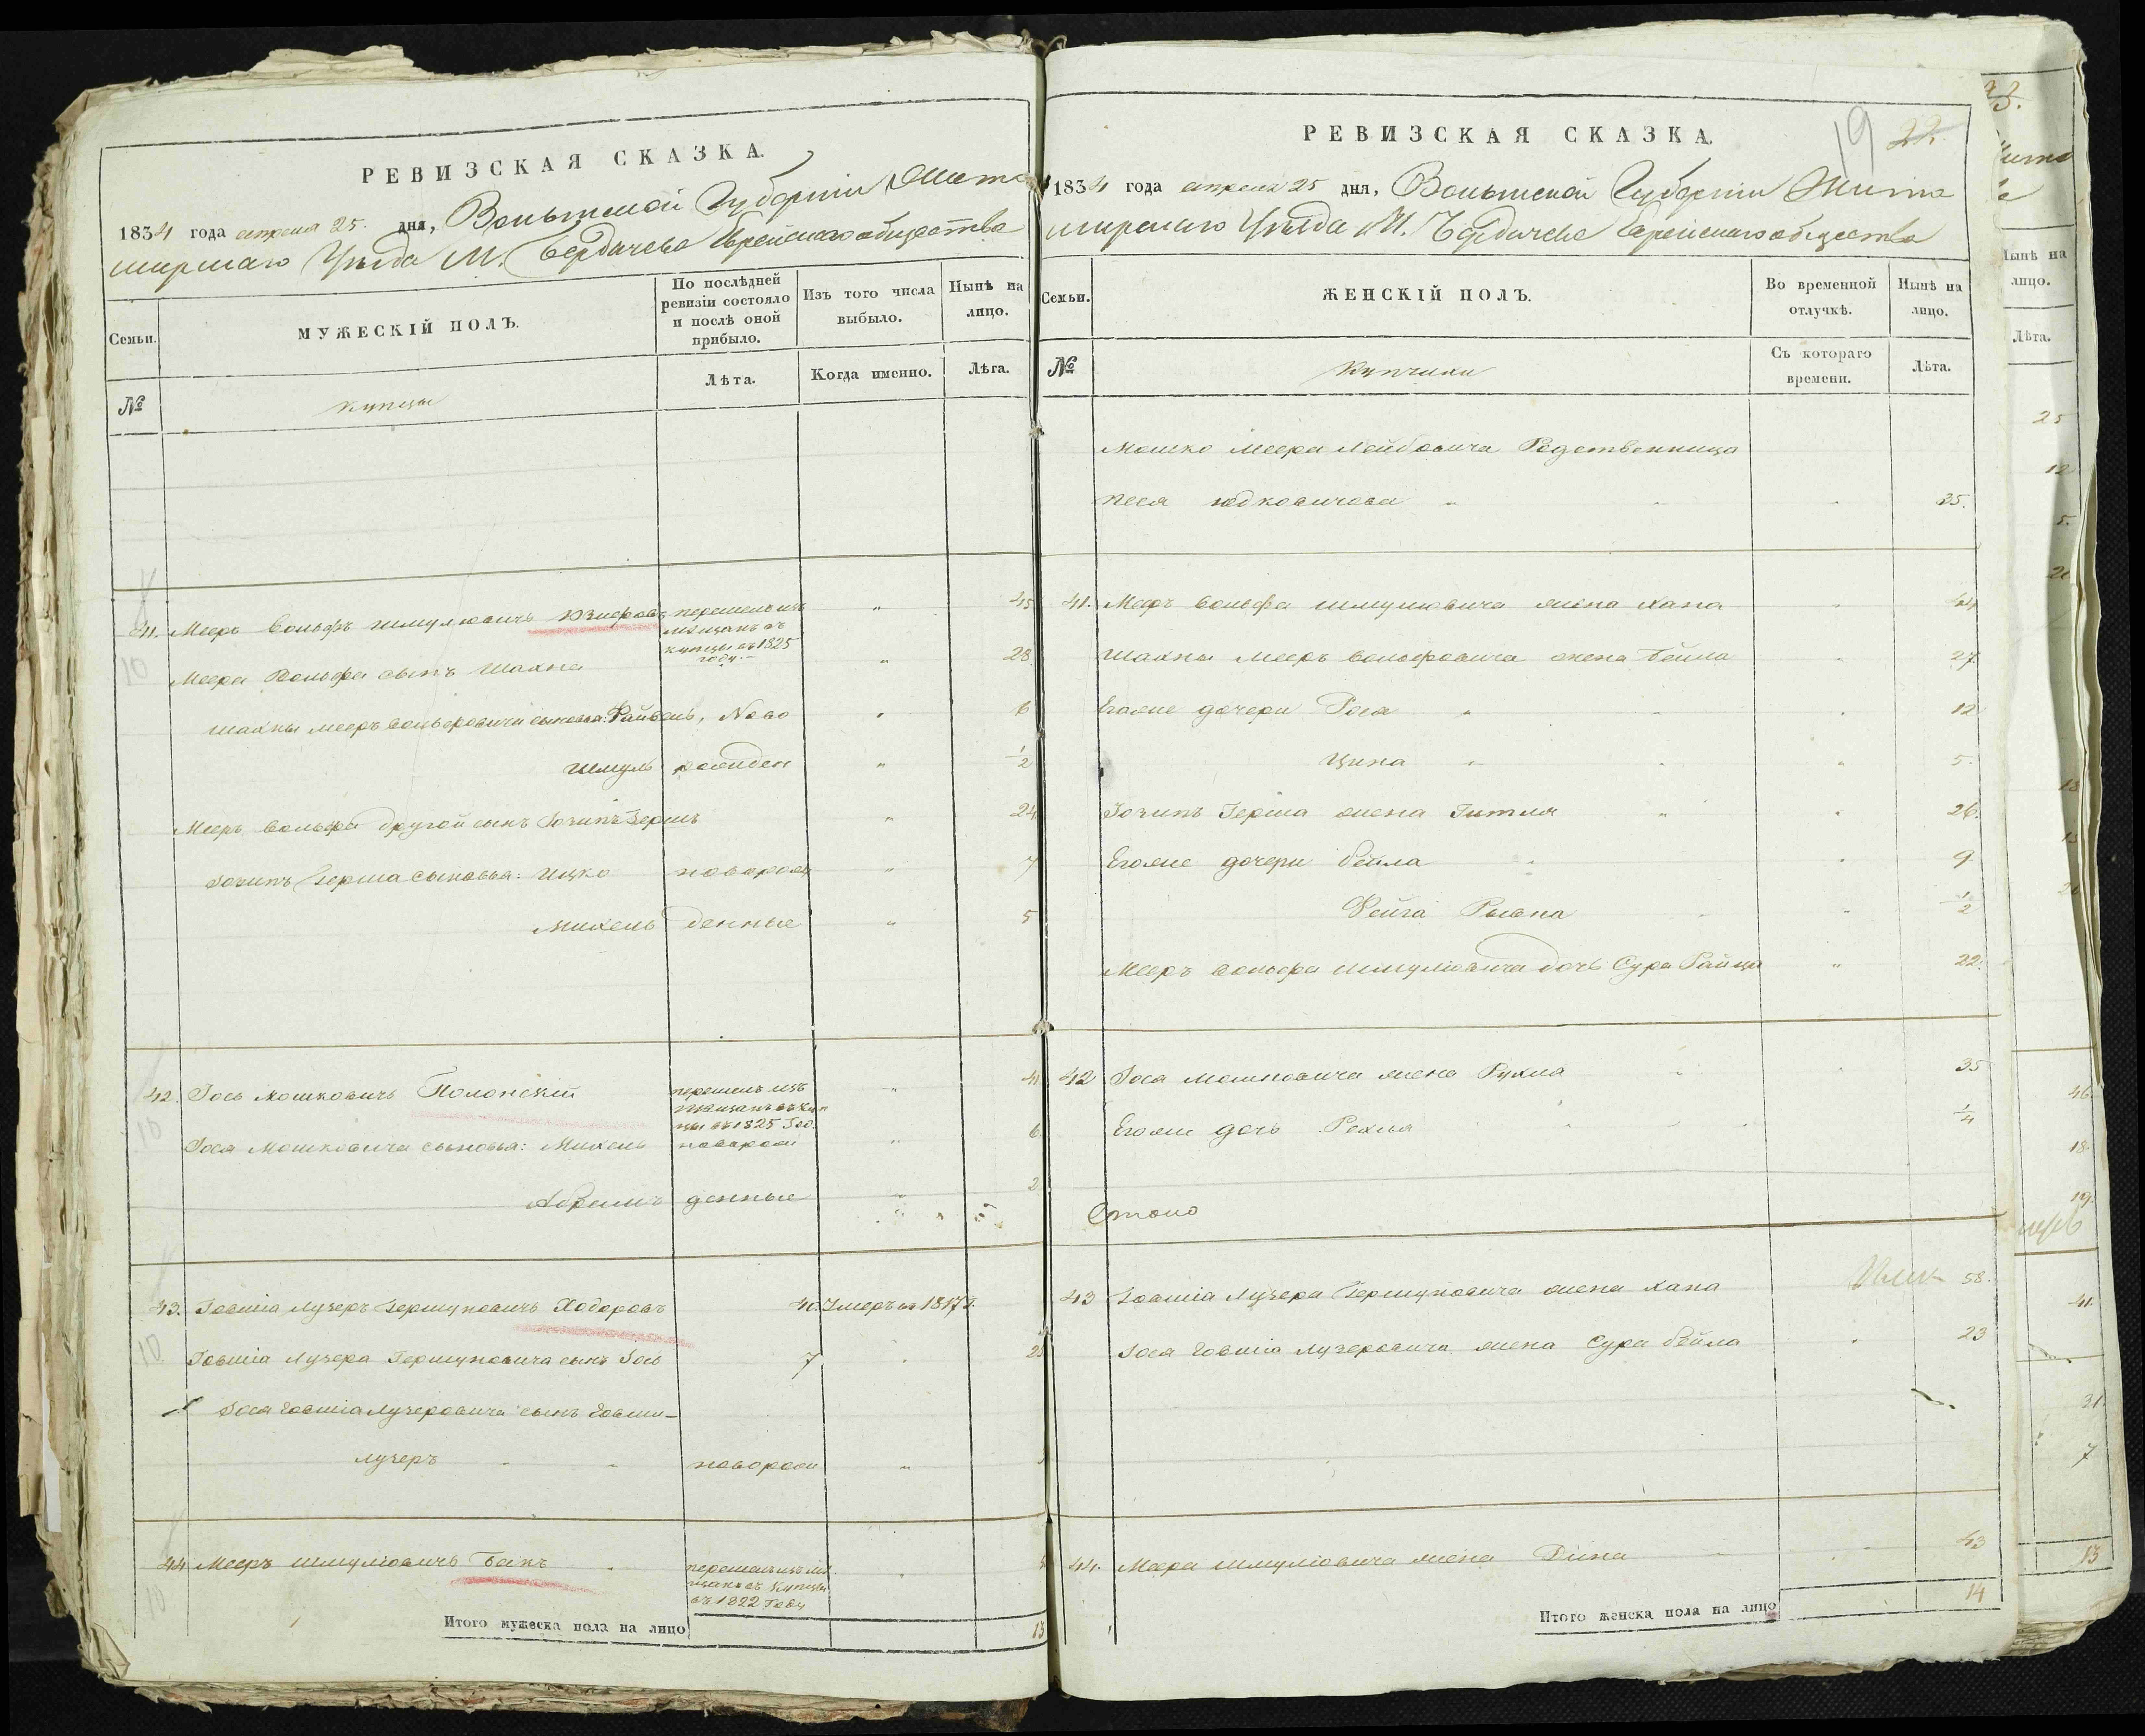 РЕВИЗСКАЯ СКАЗКА.
1834 года апреля 25. дня, Волынской Губернии Жито
мирскаго Уѣзда М. Бердичева Еврейскаго общества
Семьи.
МУЖЕСКІЙ ПОЛЪ.
По послѣдней ревизіи состояло и послѣ оной прибыло.
Изъ того числа выбыло.
Нынѣ на лицо.
№
купцы
Лѣта.
Когда именно.
Лѣта.
41. Мееръ Вольфъ Шмулювичъ перешелъ изъ " 45
мещанъ въ
купцы въ 1825
году.
Меера Вольфа сынъ Шахна " 28
Шахны Мееръ Вольфовича сыновья: Файвель, Ново " 6
Шмуль рожден " 1/2
Мееръ Вольфа другой сынъ Іозипъ Гершъ " 24
Іозипъ Герша сыновья: Ицко новорож " 7
Михель денные " 5
42. Іось Мошковичъ Полонскій перешелъ изъ " 41
мещанъ въ куп
цы въ 1825 Год.
Іося Мошковича сыновья: Михель новорож " 6
Абрамъ денные " 2
43. Іовшіа Лузеръ Гершуновичъ Ходоровъ 40 Умеръ въ 1817 г.
Іовшіа Лузера Гершуновича сынъ Іось 7 "
Іося Іовшіа Лузеровича сынъ Іовши-
лузеръ " " новорож "
44 Мееръ Шмулювичъ Банъ перешелъ изъ ме
щанъ въ купцы
въ 1822 Году
10
10
10
10
Итого мужеска пола на лицо 13
РЕВИЗСКАЯ СКАЗКА.
19 22.
1834 года апреля 25 дня, Волынской Губернии Жито
мирскаго Уѣзда М. Бердичева Еврейскаго общества
Семьи.
ЖЕНСКІЙ ПОЛЪ.
Во временной отлучкѣ.
Нынѣ на лицо.
№
Купчихи
Съ котораго времени.
Лѣта.
Мошко Меера Лейбовича Родственница
Песя Юдковичова " " " 35.
41. Мееръ Вольфа Шмулювича жена Хана " 44
Шахны Мееръ Вольфовича жена Бейла " 27
Егоже дочери Рося " " " 12
Ципа " " " 5.
Іозипъ Герша жена Гитля " " 26.
Егоже дочери Бейла " " 9
Фейга Рывка " " 1/2
Мееръ Вольфа Шмулювича дочь Сура Райца " 22.
42 Іося Мошковича жена Рухля " " 35
Егоже дочь Рохля " " 1/4
43 Іовшіа Лузера Гершуновича жена Хана 58.
Іося Іовшіа Лузеровича жена Сура Бейла " 23
44. Меера Шмулювича жена Дина " " 43
Итого женска пола на лицо 14
23.
Нынѣ на
лицо.
Лѣта.
25
12
5.
18
46.
18.
19.
41.
31.
7
13